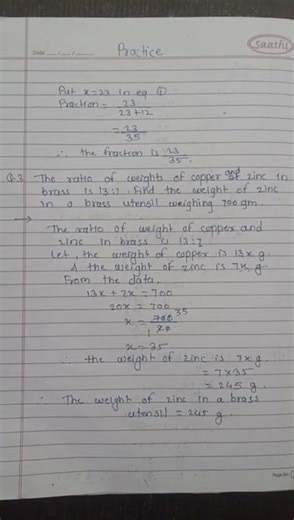 Date ___/___/___
Practice
Saathi
Put x=23 in eq ①
Fraction = 23
23+12
= 23
35
∴ the fraction is 23/35.
Q.3 The ratio of weights of copper and of zinc in
brass is 13:7. Find the weight of zinc
in a brass utensil weighing 700 gm.
→ The ratio of weight of copper and
zinc in brass is 13:7
Let, the weight of copper is 13x g.
& the weight of zinc is 7x g.
From the data,
13x + 7x = 700
20x = 700
x = 700 35
1 20
x = 35
∴ the weight of zinc is 7x g.
= 7×35
= 245 g.
∴ The weight of zinc in a brass
utensil = 245 g.
Page No.